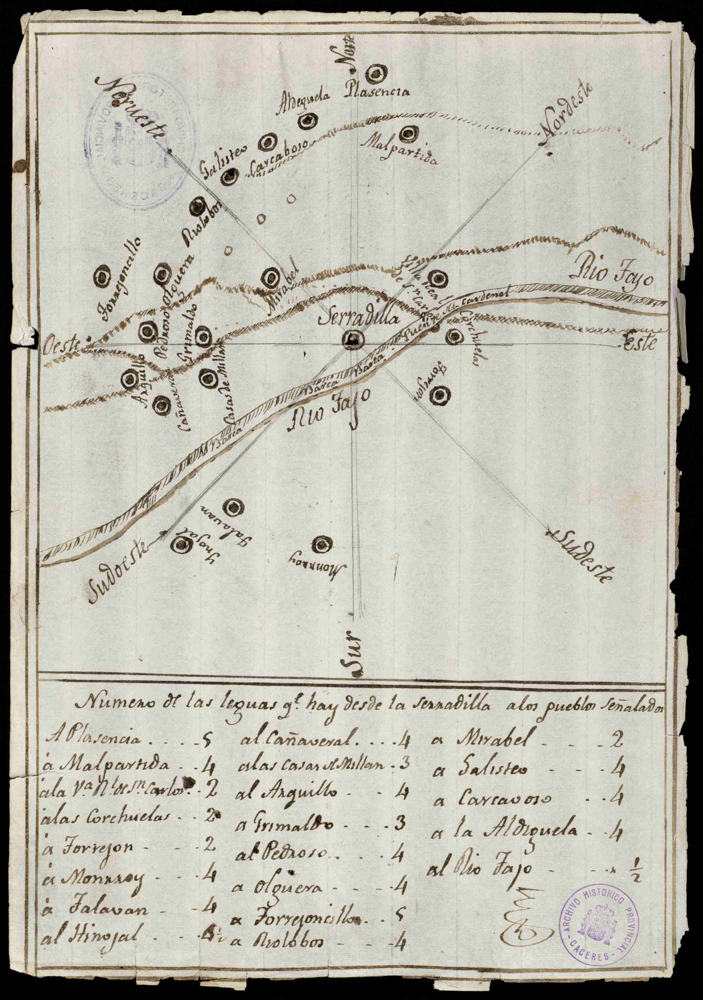 Norte
Plasencia
Aldeguela
Norueste
Nordeste
Malpartida
Carcaboso
Galisteo
Riolobos
Torrejoncillo
Olguera
Pedroso
Mirabel
Villa Real
De Sn Carlos
Rio Tajo
Puente Al Cardenal
Serradilla
Corchuelas
Oeste
Este
Grimaldo
Arquillo
Cañaveral
Casas de Millan
Torrejon
Barca
Barca
Barca
Rio Tajo
Barca
Talavan
Inojal
Monrroy
Sudoeste
Sudeste
Sur
Numero de las leguas qe. hay desde la serradilla a los pueblos señalados
A Plasencia . . . . 5
à Malpartida . . . 4
àla Va. Rl. de Sn. Carlos . . 2
àlas Corchuelas . . . 2
à Torrejon - - - 2
à Monrroy - - - 4
à Talavan - - - 4
al Hinojal - - -
al Cañaveral . . . . 4
alas Casas de Millan . 3
al Arquillo - - 4
a Grimaldo - - - 3
al Pedroso . . . 4
a Olguera - - - 4
a Torrejoncillo . . 5
a Riolobos - - - 4
a Mirabel - - - 2
a Galisteo - - - 4
a Carcavoso . . . 4
a la Aldeguela - . 4
al Rio Tajo - - - ½
ARCHIVO HISTORICO PROVINCIAL
- CACERES -